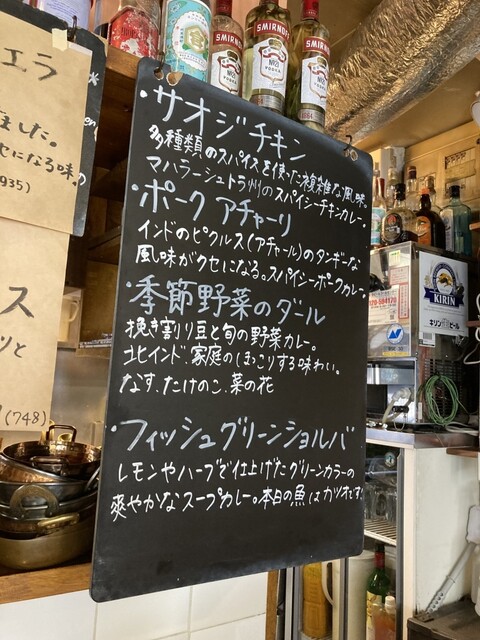 SMIRNOFF
SMIRNOFF
SMIRNOFF
VODKA
エラ
ました。
セになる味の
935)
ス
ツと
(748)
・サオジチキン
多種類のスパイスを使った複雑な風味。
マハラーシュトラ州のスパイシーチキンカレー。
・ポークアチャーリ
インドのピクルス(アチャール)のタンギーな
風味がクセになる。スパイシーポークカレー。
・季節野菜のダール
挽き割り豆と旬の野菜カレー。
北インド、家庭のほっこりする味わい。
なす、たけのこ、菜の花
・フィッシュグリーンショルバ
レモンやハーブで仕上げたグリーンカラーの
爽やかなスープカレー。本日の魚はカツオです!
KIRIN
キリンビール